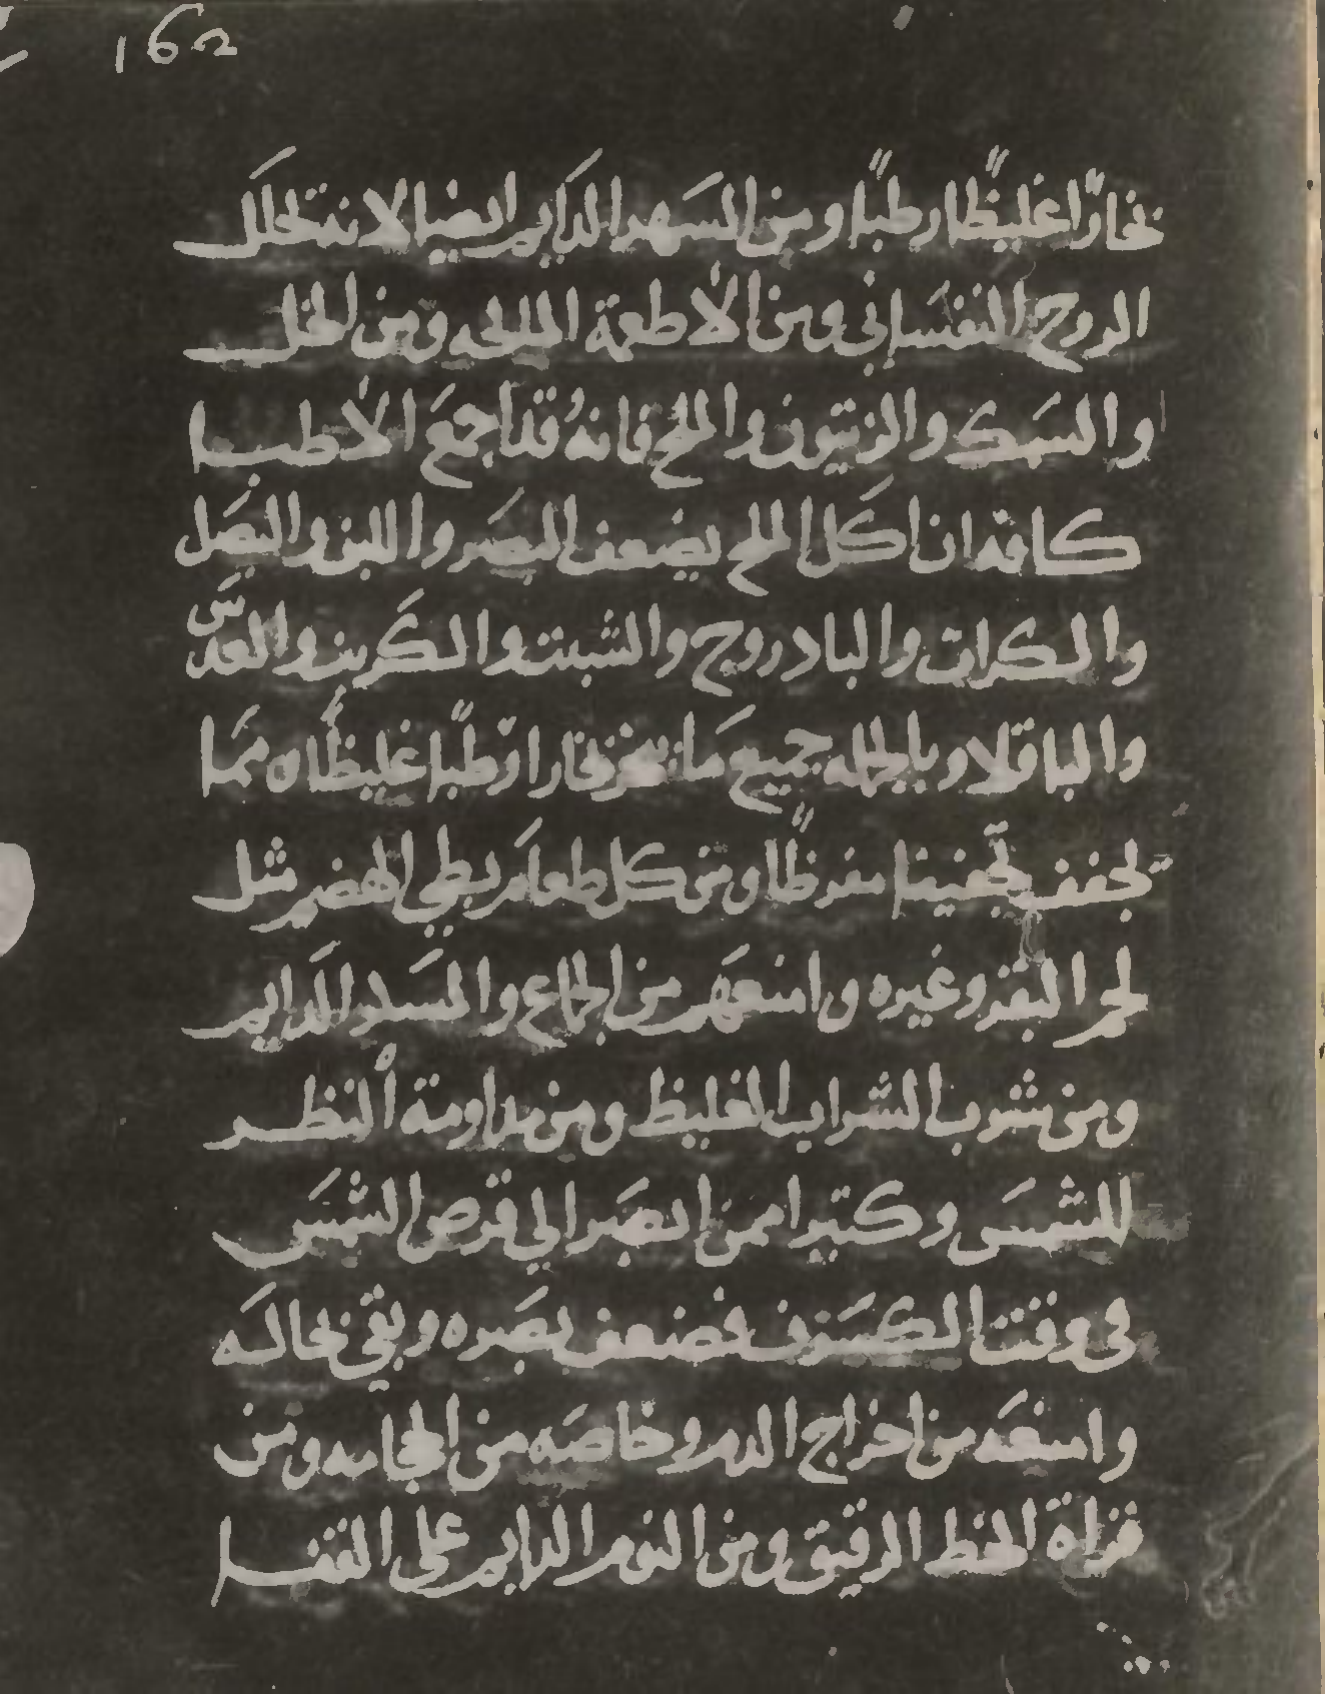 ١٦٥
بخارًا غليظًا رطبًا ومن السهر الدايم ايضا لانه تحلل
الروح النفساني ومن الاطعمة المالحه ومن الخل
والسمك والزيتون والملح فانه قد اجمع الاطبا
كافه ان اكل الملح يضعف البصر واللبن والبصل
والكرات والبادروج والشبت والكرنب والعدس
والباقلا وبالجمله جميع ما يبخر بخارا رطبًا غليظًا ومما
تجفف تجفيفا مفرطًا ومن كل طعام بطي الهضم مثل
لحم البقر وغيره وامنعهم من الجماع والسدر الدايم
ومن شرب الشراب الغليظ ومن مداومة النظر
للشمس وكثيرا ممن ابصر الي قرص الشمس
في وقت الكسوف فضعف بصره وبقي بحاله
وامنعه من اخراج الدم وخاصه من الحجامه ومن
قراة الخط الرقيق ومن النوم الدايم على القفا